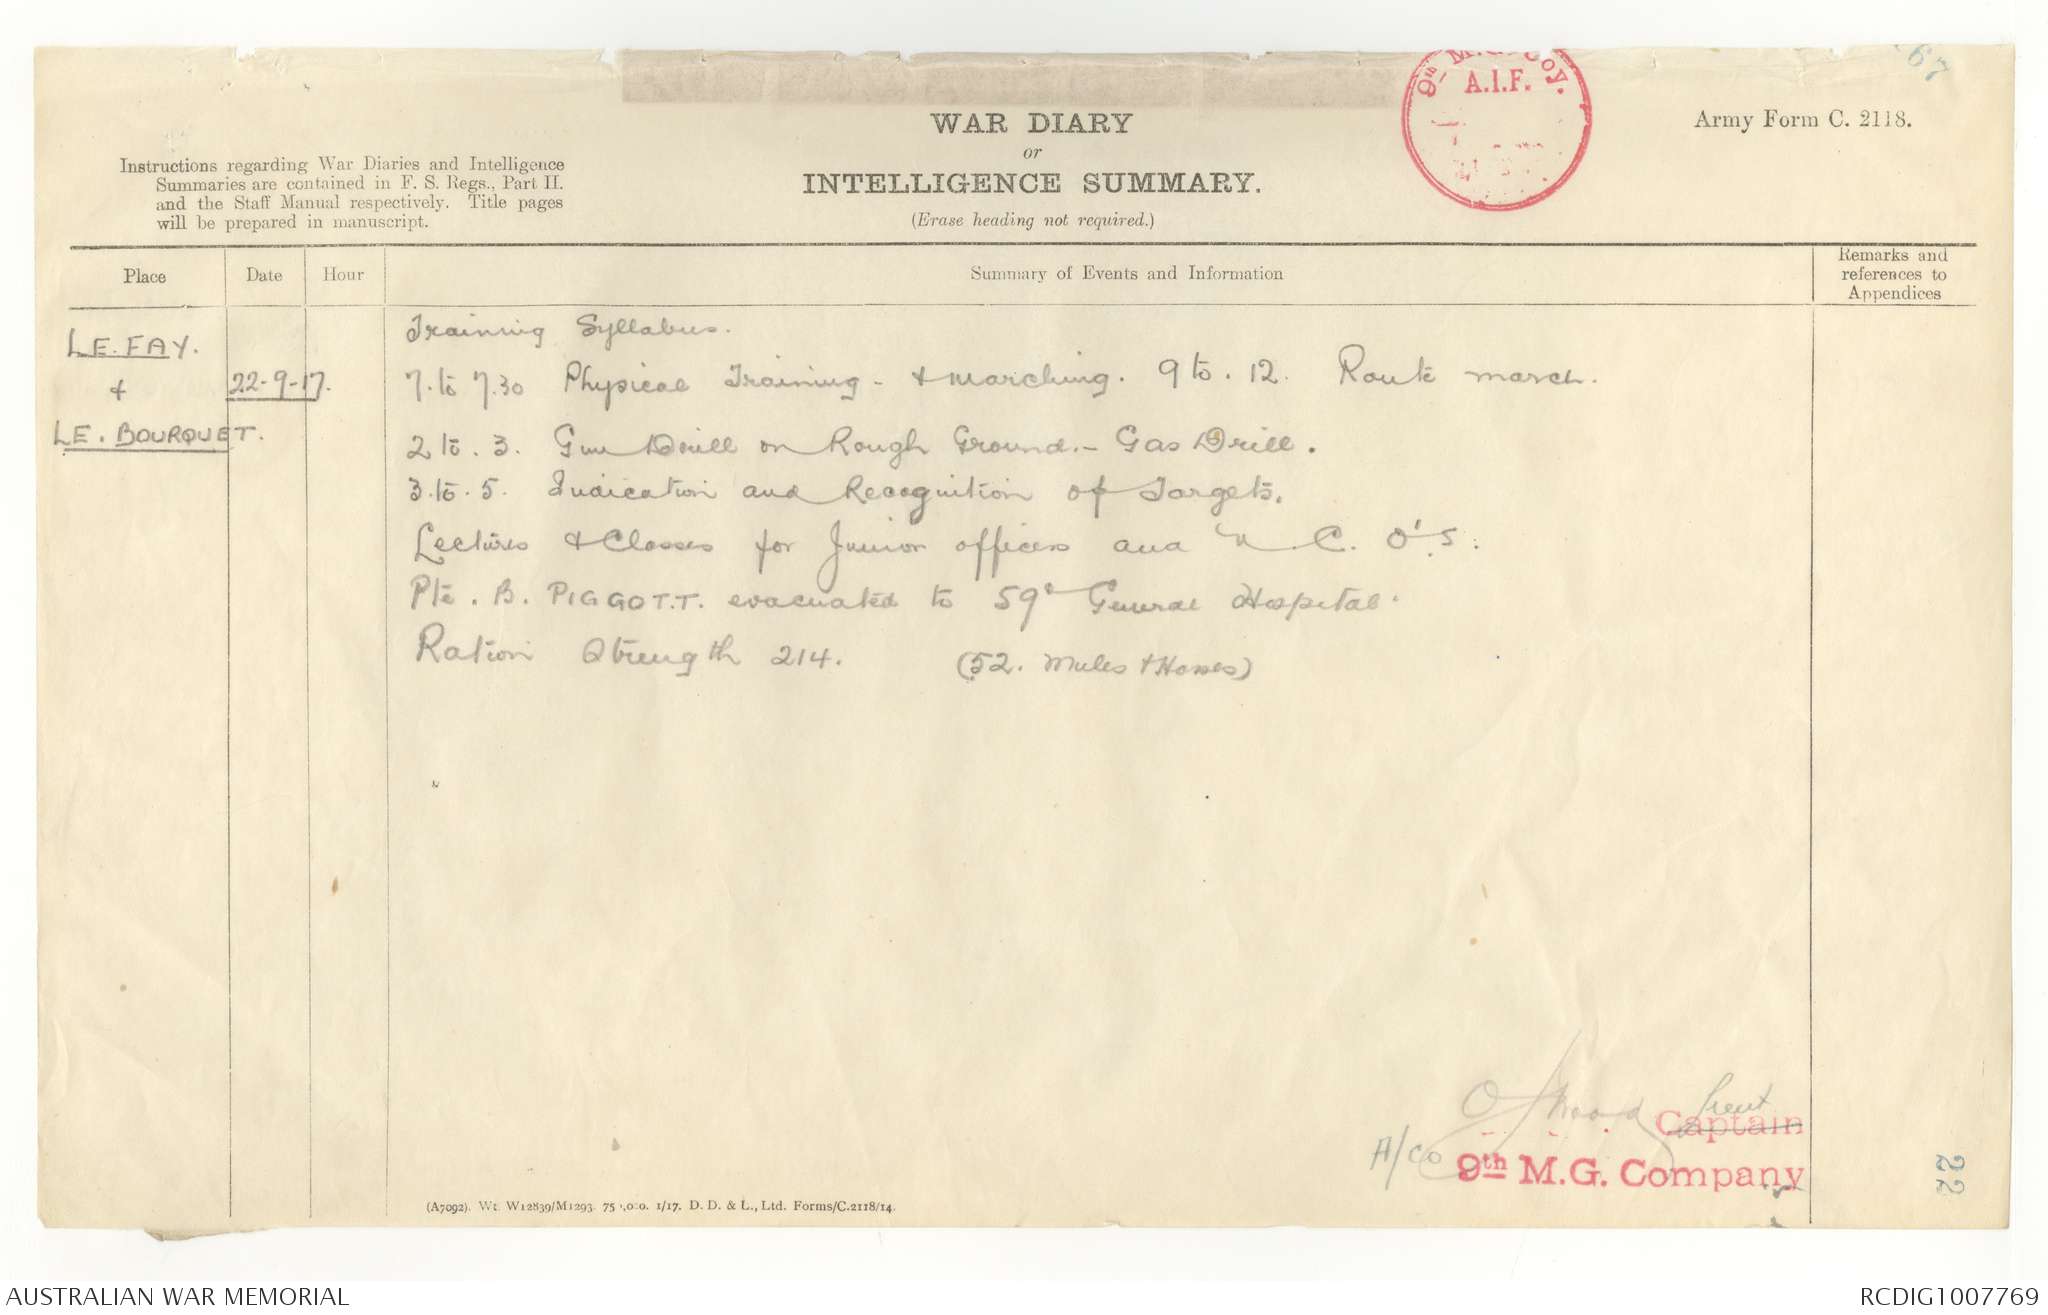 67
9th M.G. Coy.
A.I.F.
Army Form C. 2118.
WAR DIARY
or
INTELLIGENCE SUMMARY.
(Erase heading not required.)
Instructions regarding War Diaries and Intelligence
Summaries are contained in F. S. Regs., Part II.
and the Staff Manual respectively. Title pages
will be prepared in manuscript.
Place
Date
Hour
Summary of Events and Information
Remarks and
references to
Appendices
LE. FAY.
+
LE. BOURQUET.
22-9-17.
Training Syllabus.
7. to 7.30 Physical Training - & marching. 9 to. 12. Route march.
2 to. 3. Gun Drill on Rough Ground. - Gas Drill.
3. to. 5. Indication and Recognition of Targets.
Lectures & Classes for Junior officers and N. C. O's.
Pte. B. PIGGOTT. evacuated to 59th General Hospital.
Ration Strength 214. (52. Mules & Horses)
Lieut
Captain
A/CO
9th M.G. Company
22
(A7092). Wt. W12839/M1293. 75 ,000. 1/17. D. D. & L., Ltd. Forms/C.2118/14.
AUSTRALIAN WAR MEMORIAL
RCDIG1007769